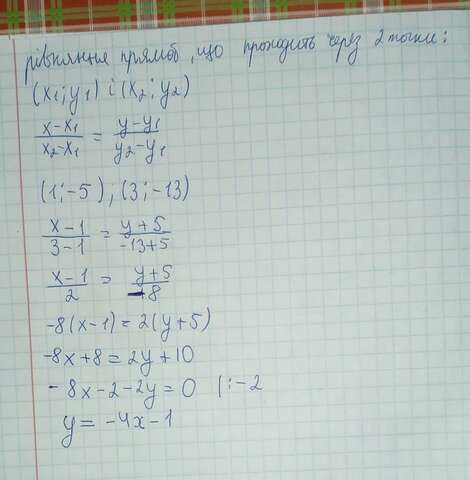 рівняння прямої, що проходить через 2 точки:
(x₁; y₁) і (x₂; y₂)
x-x₁/x₂-x₁ = y-y₁/y₂-y₁
(1;-5), (3;-13)
x-1/3-1 = y+5/-13+5
x-1/2 = y+5/-8
-8(x-1)=2(y+5)
-8x+8=2y+10
-8x-2-2y=0 |:-2
y=-4x-1